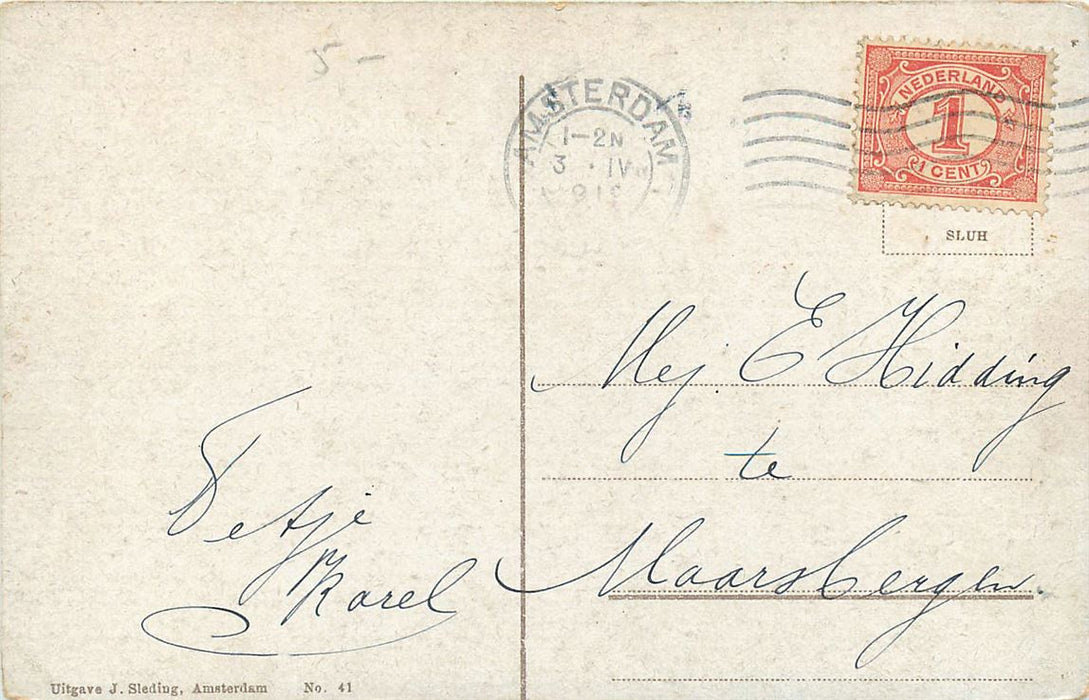 5-
AMSTERDAM
1-2N
3 . IV
NEDERLAND
1
1 CENT
SLUH
Mej. E Hidding
te
Maarsbergen.
Karel
Uitgave J. Sleding, Amsterdam No. 41